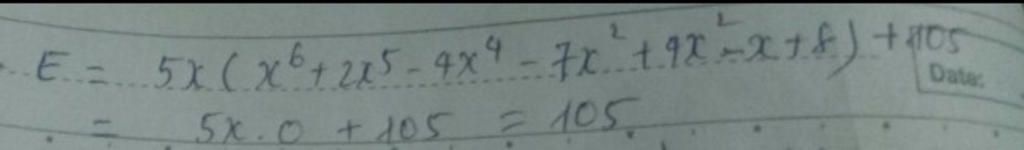 E = 5x(x⁶+2x⁵-4x⁴-7x²+9x²-x+8)+105
Date:
= 5x.0 + 105 = 105